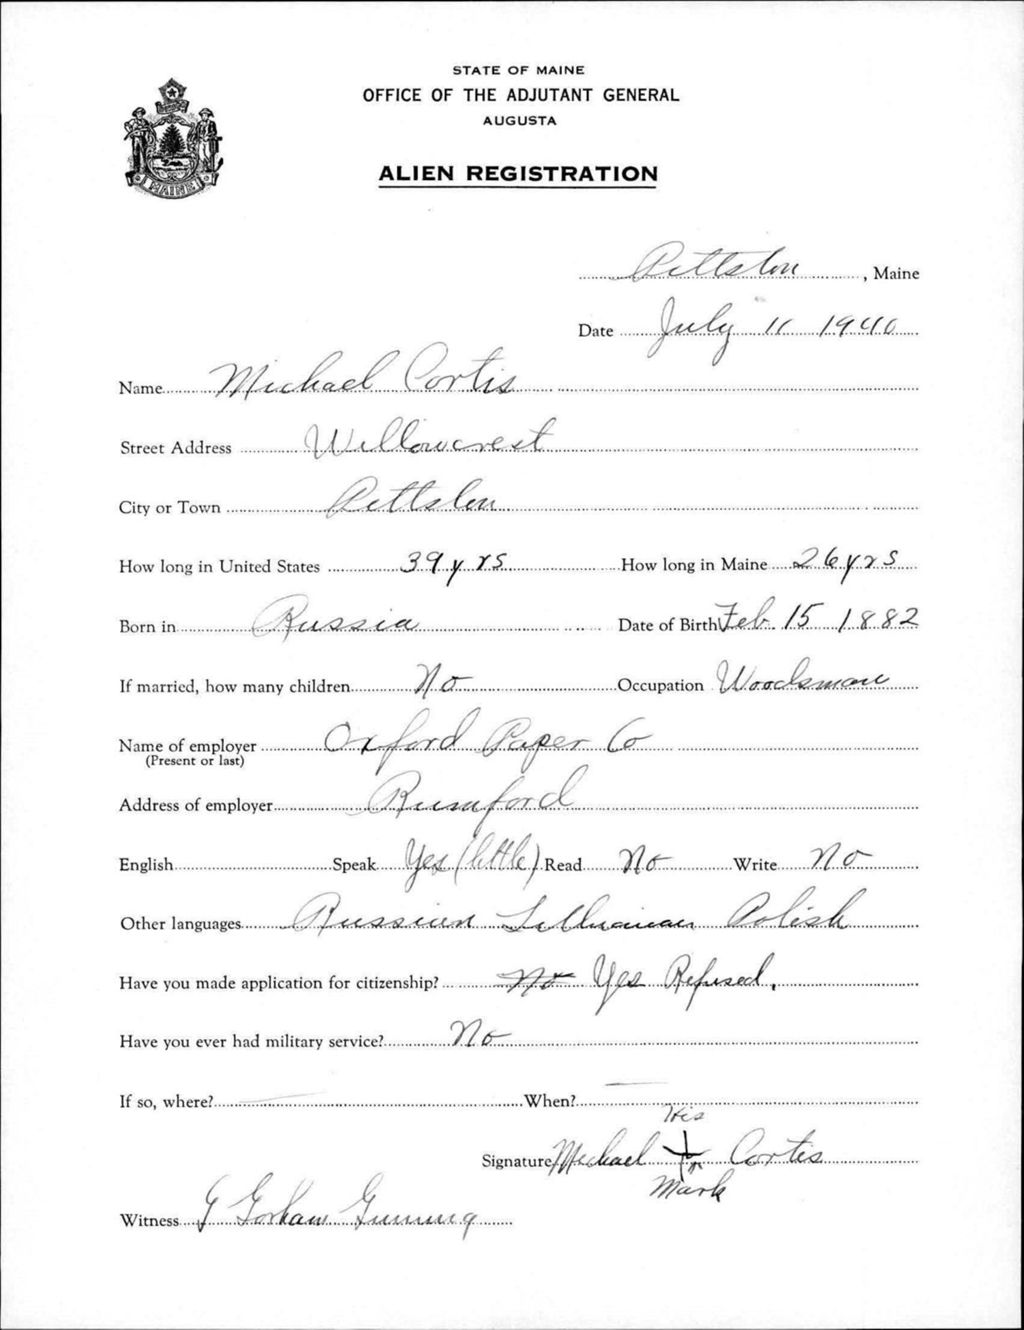 STATE OF MAINE
OFFICE OF THE ADJUTANT GENERAL
AUGUSTA
ALIEN REGISTRATION
MAINE
Pittston, Maine
Date July 11 1940
Name Michael Cortis
Street Address Willowcrest
City or Town Pittston
How long in United States 39 yrs How long in Maine 26 yrs
Born in Russia Date of Birth Feb 15 1882
If married, how many children No Occupation Woodsman
Name of employer Oxford Paper Co
(Present or last)
Address of employer Rumford
English Speak Yes (little) Read No Write No
Other languages Russian Lithuanian Polish
Have you made application for citizenship? No Yes Refused.
Have you ever had military service? No
If so, where? — When? —
His
Signature Michael + Cortis
Mark
Witness G Gorham Gunning